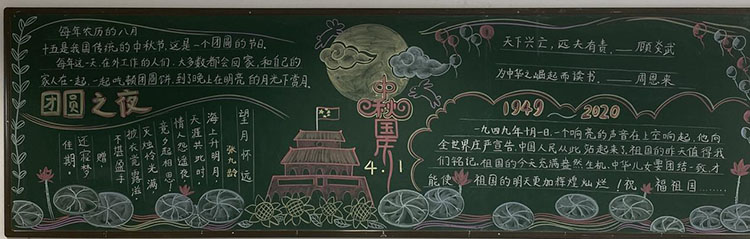 每年农历的八月
十五是我国传统的中秋节,这是一个团圆的节日。
每年这一天,在外工作的人们,大多数都会回家,和自己的
家人在一起,一起吃顿团圆饼,到了晚上在明亮的月光下赏月。
团圆之夜
望月怀远
张九龄
海上升明月,
天涯共此时。
情人怨遥夜,
竟夕起相思!
灭烛怜光满,
披衣觉露滋。
不堪盈手
赠,
还寝梦
佳期。
中秋国庆
4.1
天下兴亡,匹夫有责。——顾炎武
为中华之崛起而读书。——周恩来
1949～2020
一九四九年十月一日,一个响亮的声音在上空响起,他向
全世界庄严宣告:中国人民从此站起来了,祖国的昨天值得我
们铭记,祖国的今天充满盎然生机,中华儿女要团结一致,才
能使祖国的明天更加辉煌灿烂!祝福祖国......